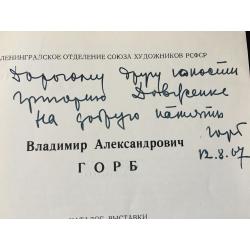 ЛЕНИНГРАДСКОЕ ОТДЕЛЕНИЕ СОЮЗА ХУДОЖНИКОВ РСФСР
Дорогому другу юности
Григорию Довженко
на добрую память
Горб
12.8.67
Владимир Александрович
ГОРБ
КАТАЛОГ ВЫСТАВКИ